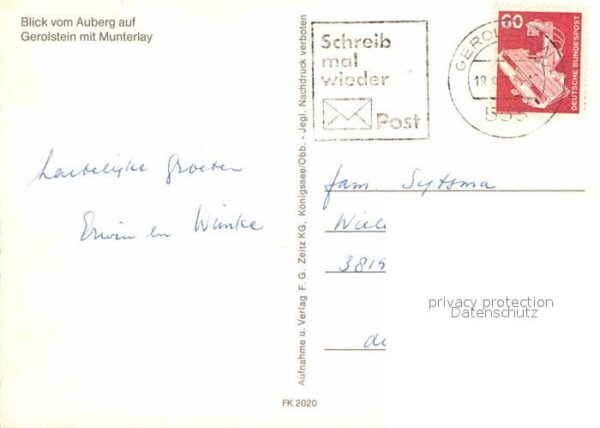 Blick vom Auberg auf
Gerolstein mit Munterlay
Schreib
mal
wieder
Post
60
DEUTSCHE BUNDESPOST
GEROL
555
Hartelijke Groeten
Erwin en Wimke
fam. Sytsma
Wiel
3815
de
privacy protection
Datenschutz
Aufnahme u. Verlag F. G. Zeitz KG, Königssee/Obb. - Jegl. Nachdruck verboten
FK 2020